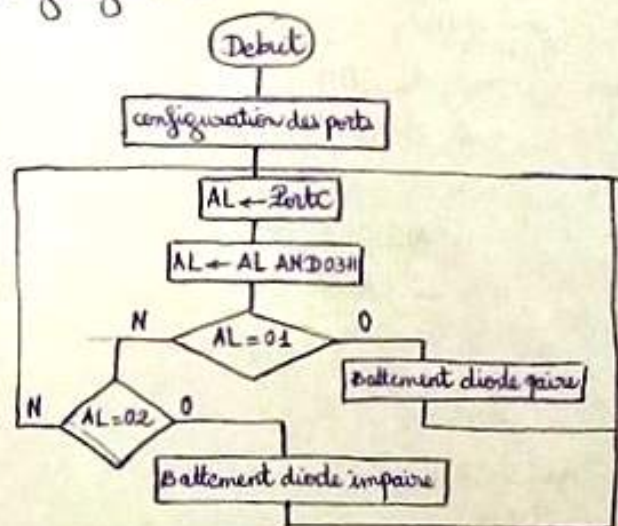 Debut
configuration des ports
AL ← PortC
AL ← AL AND 03H
N
AL = 01
O
Battement diode paire
N
AL = 02
O
Battement diode impaire